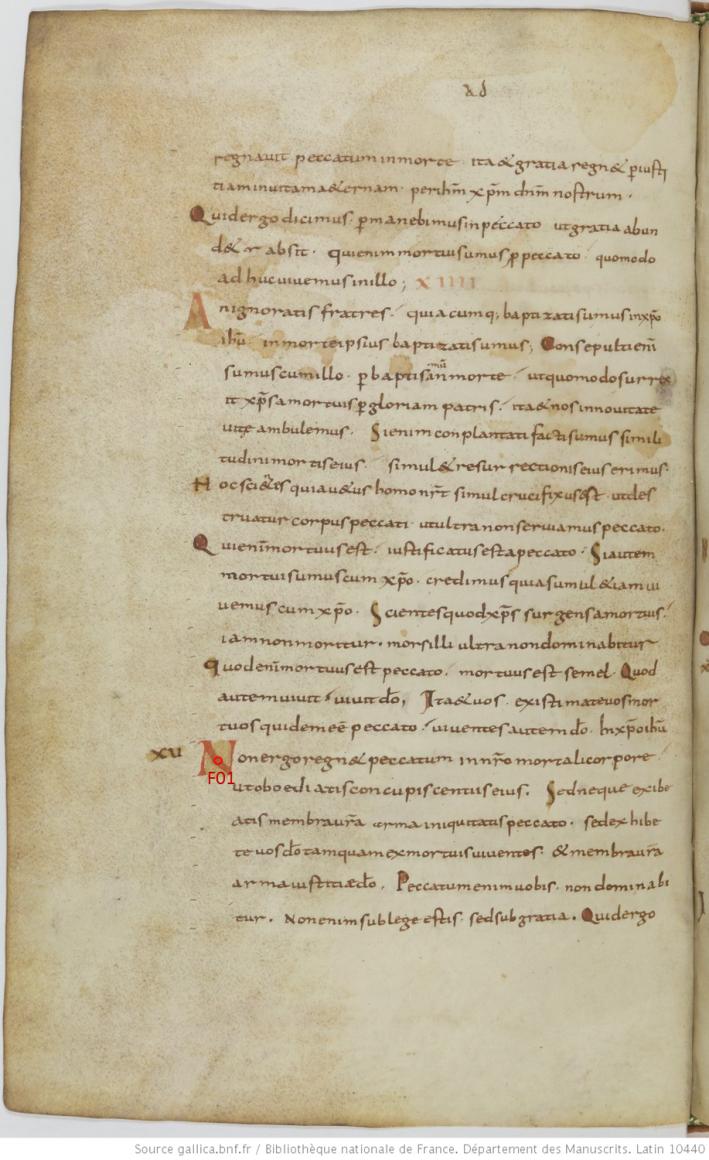 ad
regnauit peccatum in morte · ita & gratia regn& p iusti
tiam in uitam a&ernam · per ihm xpm dnm nostrum ·
Quid ergo dicimus · pmanebimus in peccato ut gratia abun
d& absit · qui enim mortui sumus peccato · quomodo
adhuc uiuemus in illo ; XIIII
An ignoratis fratres · quia cumq; baptizati sumus in xpo
ihu · in morte ipsius baptizati sumus ; Consepulti eni
sumus cum illo · p baptismu in morte · ut quomodo surrex
it xps a mortuis p gloriam patris · ita & nos in nouitate
uite ambulemus · Si enim conplantati facti sumus simili
tudini mortis eius · simul & resurrectionis eius erimus ·
Hoc quia u&us homo nr simul crucifixus est · ut des
truatur corpus peccati · ut ultra non seruiamus peccato ·
Qui enim mortuus est · iustificatus est a peccato · Si autem
mortui sumus cum xpo · credimus quia simul &iam ui
uemus cum xpo · Scientes quod xps surgens a mortuis ·
iam non moritur · mors illi ultra non dominabitur
quod enim mortuus est peccato · mortuus est semel · Quod
autem uiuit · uiuit do, Ita & uos · existimate uos mor
tuos quidem ee peccato · uiuentes autem do · In xpo ihu
XV Non ergo regn& peccatum in nro mortali corpore
ut oboediatis concupiscentiis eius. Sed neque exibe
atis membra ura arma iniquitatis peccato · sed exhibe
te uos do tamquam ex mortuis uiuentes · & membra ura
arma iustitiæ do. Peccatum enim uobis · non dominabi
tur. Non enim sub lege estis · sed sub gratia. Quid ergo
F01
Source gallica.bnf.fr / Bibliothèque nationale de France. Département des Manuscrits. Latin 10440